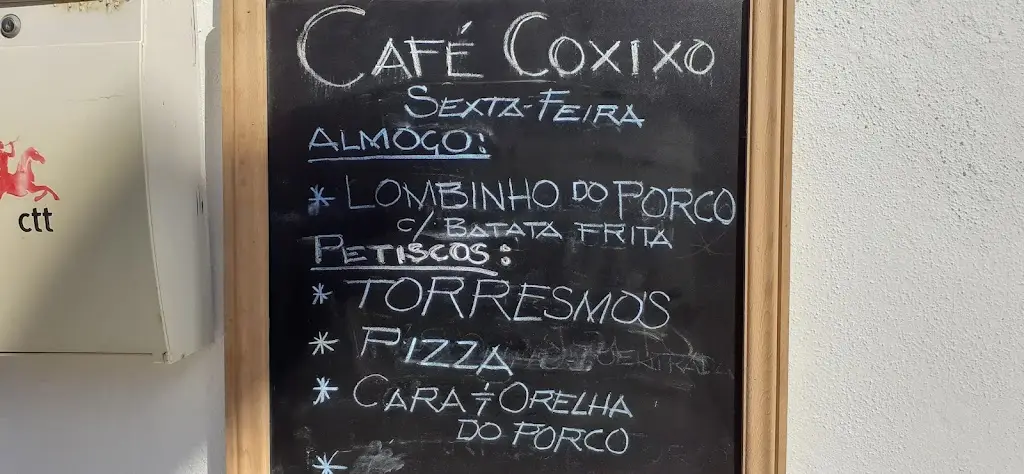 CAFÉ COXIXO
SEXTA-FEIRA
ALMÓÇO:
* LOMBINHO DO PORCO
c/ BATATA FRITA
PETISCOS:
* TORRESMOS
* PIZZA
* CARA + ORELHA
DO PORCO
*
ctt